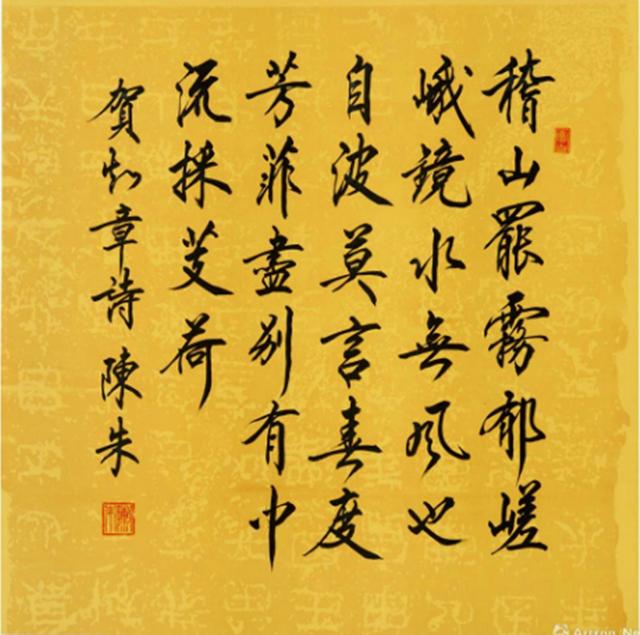 稽山罷霧郁嵯
峨鏡水無風也
自波莫言春度
芳菲盡別有中
流採芰荷
賀知章詩 陳朱